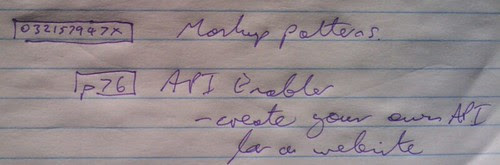 032157947X Mashup patterns.
p76 API Enabler
- create your own API
for a website